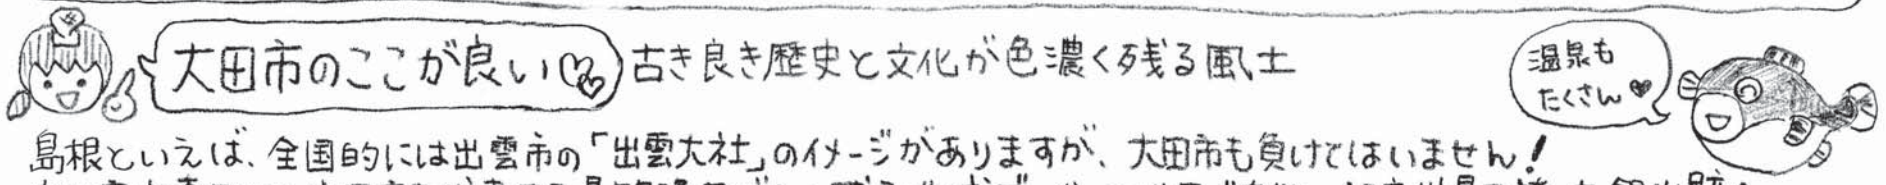 大田市のここが良い♡ 古き良き歴史と文化が色濃く残る風土
温泉も
たくさん♥
島根といえば、全国的には出雲市の「出雲大社」のイメージがありますが、大田市も負けてはいません!